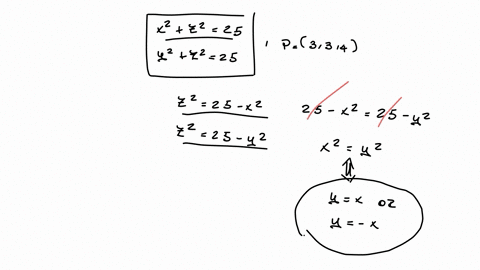 x² + z² = 25
y² + z² = 25 , P = (3,3,4)
z² = 25 - x²
z² = 25 - y²
25 - x² = 25 - y²
x² = y²
⇕
y = x or
y = -x